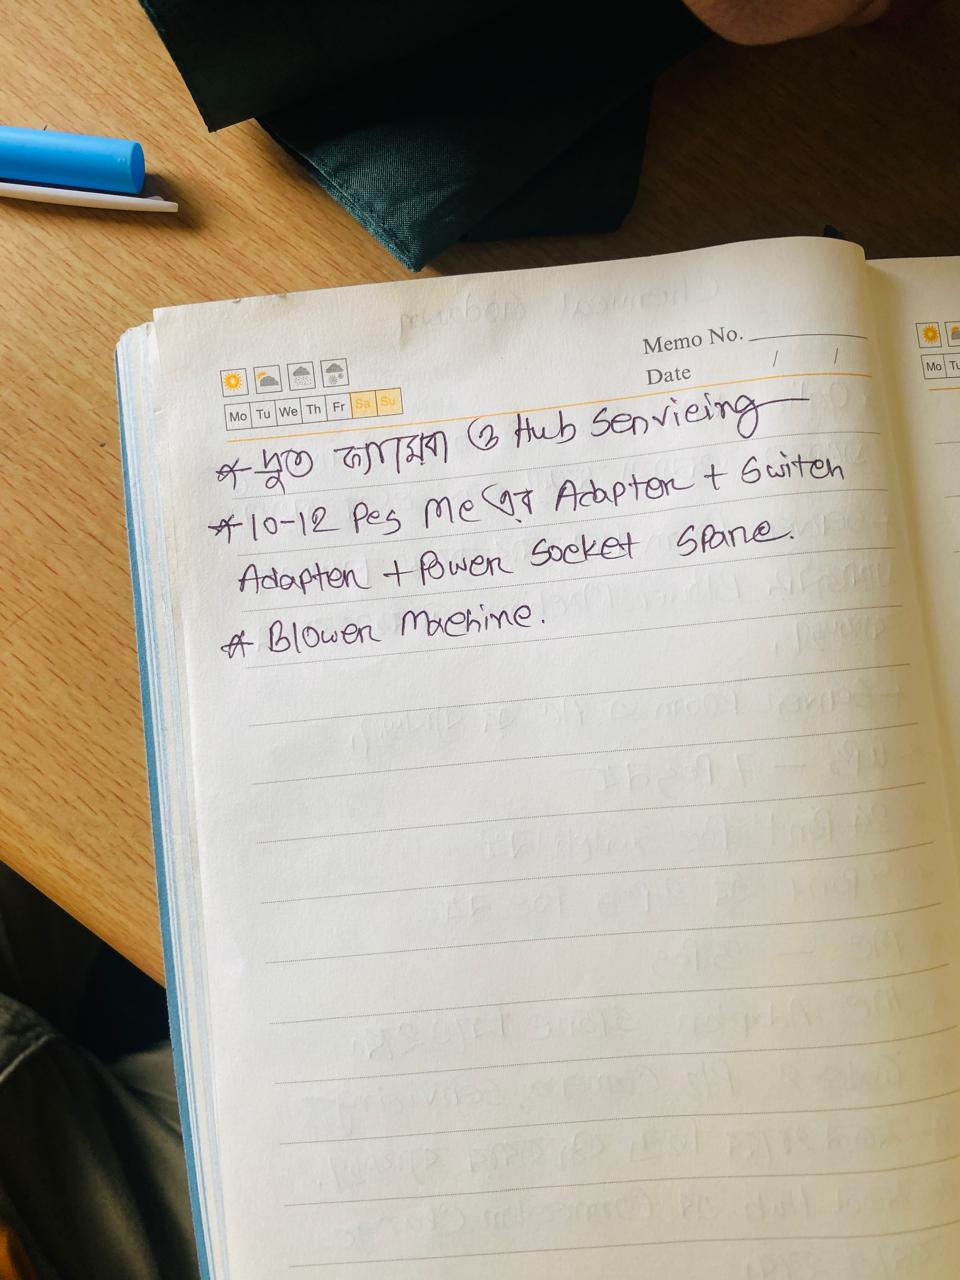 Memo No.
Date / /
Mo Tu We Th Fr Sa Su
Mo Tu
* দ্রুত ক্যামেরা ও Hub Servicing
* 10-12 Pcs Mc এর Adapter + Switch
Adapter + Power Socket Spare.
* Blower Machine.